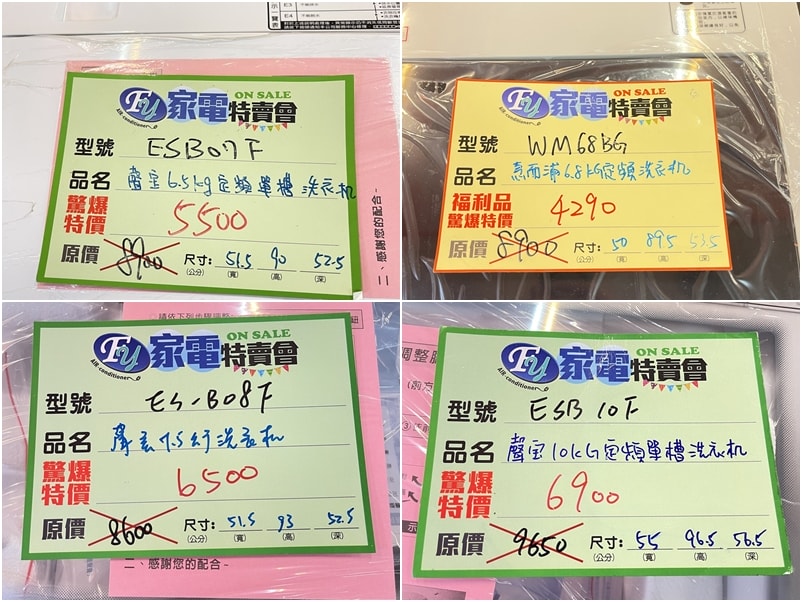 示一覽表
E3
E4
ON SALE
FU 家電特賣會
AIR-conditioner
型號 ESB07F
品名 聲宝6.5kg定頻單槽洗衣机
驚爆特價 5500
原價 8900 尺寸: 51.5 90 52.5
(公分) (寬) (高) (深)
二、感謝您的配合-
ON SALE
FU 家電特賣會
AIR-conditioner
型號 WM68BG
品名 惠而浦6.8KG定頻洗衣机
福利品
驚爆特價 4290
原價 8900 尺寸: 50 89.5 53.5
(公分) (寬) (高) (深)
請依下列步驟調整
ON SALE
FU 家電特賣會
AIR-conditioner
型號 ES-B08F
品名 聲宝7.5公斤洗衣机
驚爆特價 6500
原價 8600 尺寸: 51.5 93 52.5
(公分) (寬) (高) (深)
二、感謝您的配合-
調整腳
ON SALE
FU 家電特賣會
AIR-conditioner
型號 ESB10F
品名 聲宝10KG定頻單槽洗衣机
驚爆特價 6900
原價 9650 尺寸: 55 96.5 56.5
(公分) (寬) (高) (深)